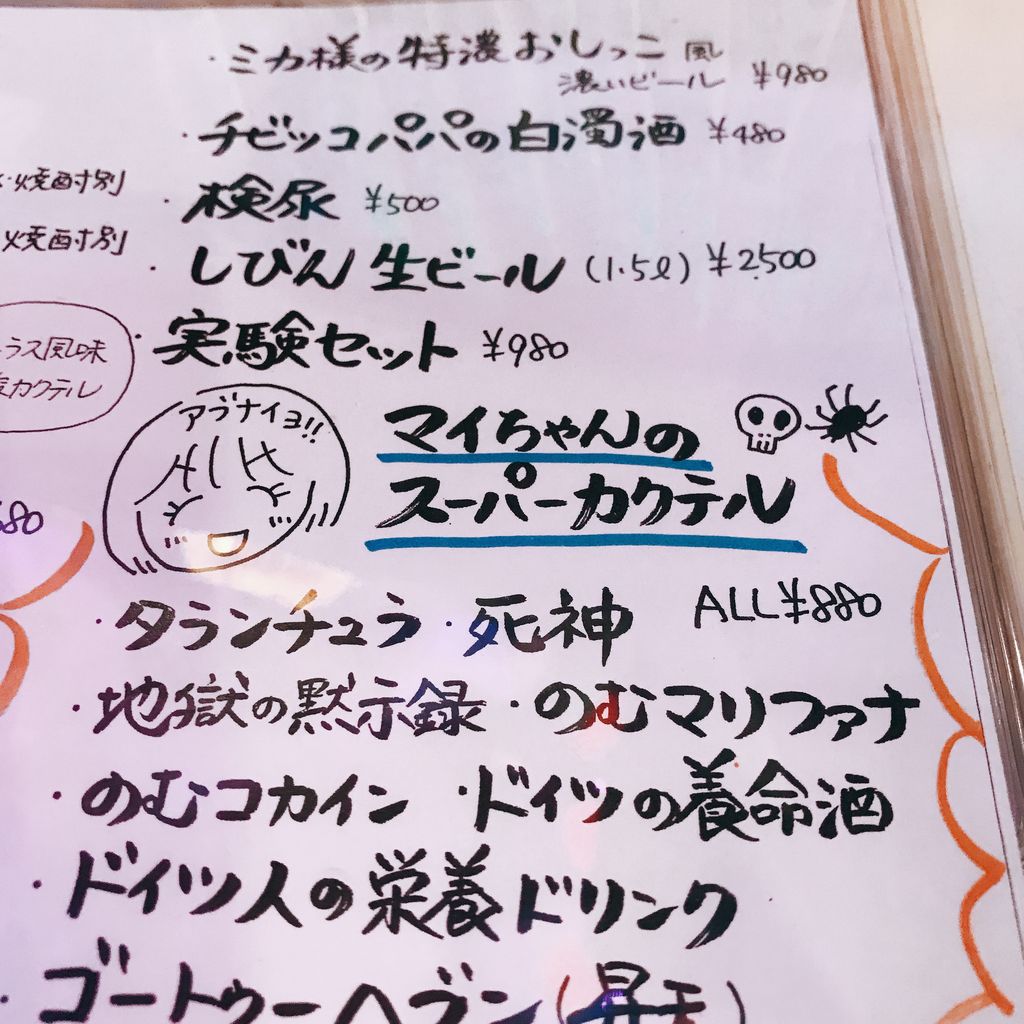 ・ミカ様の特濃おしっこ風
濃いビール ¥980
・チビッコパパの白濁酒 ¥480
焼酎別
・検尿 ¥500
焼酎別
・しびん生ビール (1.5ℓ) ¥2500
・実験セット ¥980
ラス風味
カクテル
アブナイヨ!!
マイちゃんの
スーパーカクテル
80
ALL¥880
・タランチュラ ・死神
・地獄の黙示録 ・のむマリファナ
・のむコカイン ・ドイツの養命酒
・ドイツ人の栄養ドリンク
・ゴートゥーヘブン(昇天)